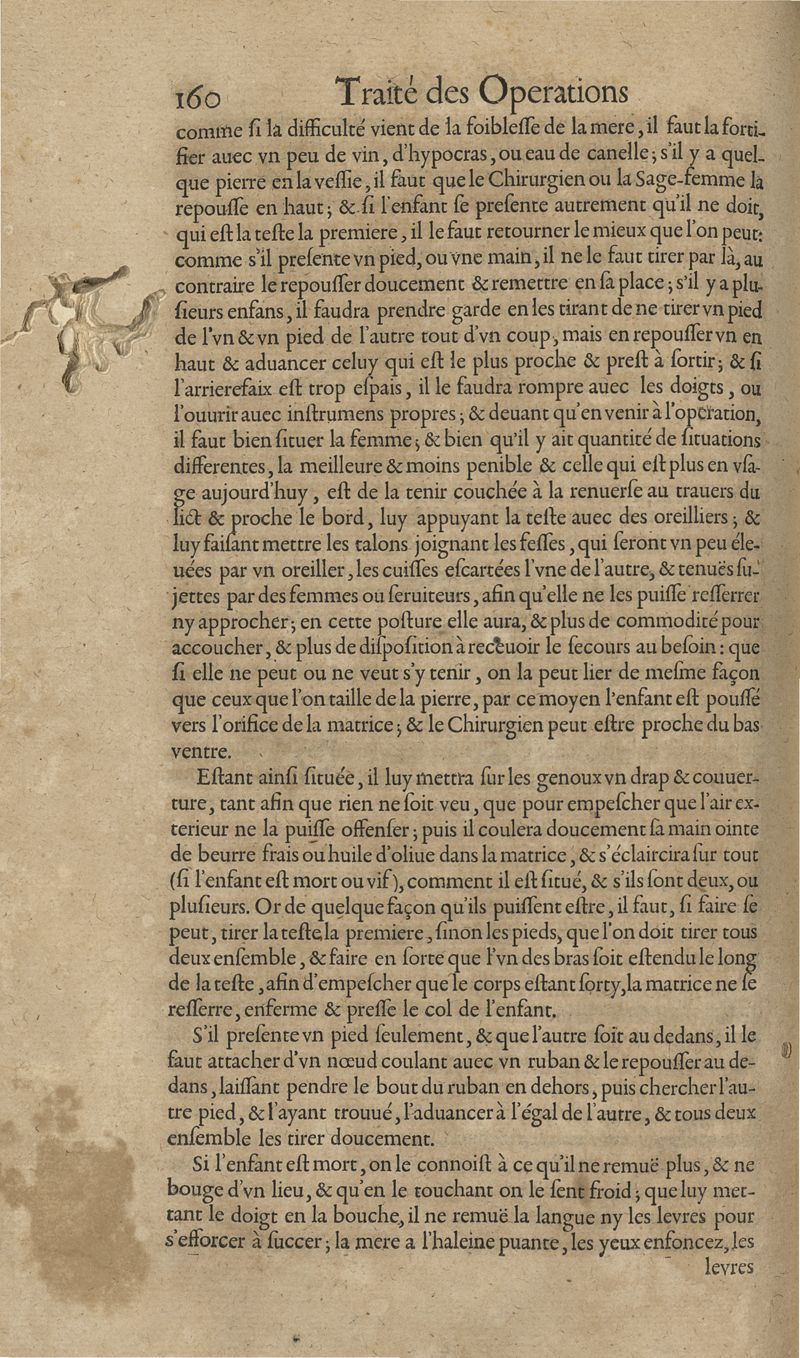 160 Traité des Operations
comme ſi la difficulté vient de la foibleſſe de la mere, il faut la forti-
fier auec vn peu de vin, d'hypocras, ou eau de canelle; s'il y a quel-
que pierre en la veſſie, il faut que le Chirurgien ou la Sage-femme la
repouſſe en haut; & ſi l'enfant ſe preſente autrement qu'il ne doit,
qui eſt la teſte la premiere, il le faut retourner le mieux que l'on peut:
comme s'il preſente vn pied, ou vne main, il ne le faut tirer par là, au
contraire le repouſſer doucement & remettre en ſa place; s'il y a plu-
ſieurs enfans, il faudra prendre garde en les tirant de ne tirer vn pied
de l'vn & vn pied de l'autre tout d'vn coup, mais en repouſſer vn en
haut & aduancer celuy qui eſt le plus proche & preſt à ſortir; & ſi
l'arrierefaix eſt trop eſpais, il le faudra rompre auec les doigts, ou
l'ouurir auec inſtrumens propres; & deuant qu'en venir à l'operation,
il faut bien ſituer la femme; & bien qu'il y ait quantité de ſituations
differentes, la meilleure & moins penible & celle qui eſt plus en vſa-
ge aujourd'huy, eſt de la tenir couchée à la renuerſe au trauers du
lict & proche le bord, luy appuyant la teſte auec des oreilliers; &
luy faiſant mettre les talons joignant les feſſes, qui ſeront vn peu éle-
uées par vn oreiller, les cuiſſes eſcartées l'vne de l'autre, & tenuës ſu-
jettes par des femmes ou ſeruiteurs, afin qu'elle ne les puiſſe reſſerrer
ny approcher; en cette poſture elle aura, & plus de commodité pour
accoucher, & plus de diſpoſition à receuoir le ſecours au beſoin: que
ſi elle ne peut ou ne veut s'y tenir, on la peut lier de meſme façon
que ceux que l'on taille de la pierre, par ce moyen l'enfant eſt pouſſé
vers l'orifice de la matrice; & le Chirurgien peut eſtre proche du bas
ventre.
Eſtant ainſi ſituée, il luy mettra ſur les genoux vn drap & couuer-
ture, tant afin que rien ne ſoit veu, que pour empeſcher que l'air ex-
terieur ne la puiſſe offenſer; puis il coulera doucement ſa main ointe
de beurre frais ou huile d'oliue dans la matrice, & s'éclaircira ſur tout
(ſi l'enfant eſt mort ou vif), comment il eſt ſitué, & s'ils ſont deux, ou
pluſieurs. Or de quelque façon qu'ils puiſſent eſtre, il faut, ſi faire ſe
peut, tirer la teſte la premiere, ſinon les pieds, que l'on doit tirer tous
deux enſemble, & faire en ſorte que l'vn des bras ſoit eſtendu le long
de la teſte, afin d'empeſcher que le corps eſtant ſorty, la matrice ne ſe
reſſerre, enferme & preſſe le col de l'enfant.
S'il preſente vn pied ſeulement, & que l'autre ſoit au dedans, il le
faut attacher d'vn nœud coulant auec vn ruban & le repouſſer au de-
dans, laiſſant pendre le bout du ruban en dehors, puis chercher l'au-
tre pied, & l'ayant trouué, l'aduancer à l'égal de l'autre, & tous deux
enſemble les tirer doucement.
Si l'enfant eſt mort, on le connoiſt à ce qu'il ne remuë plus, & ne
bouge d'vn lieu, & qu'en le touchant on le ſent froid; que luy met-
tant le doigt en la bouche, il ne remuë la langue ny les levres pour
s'efforcer à ſuccer; la mere a l'haleine puante, les yeux enfoncez, les
levres